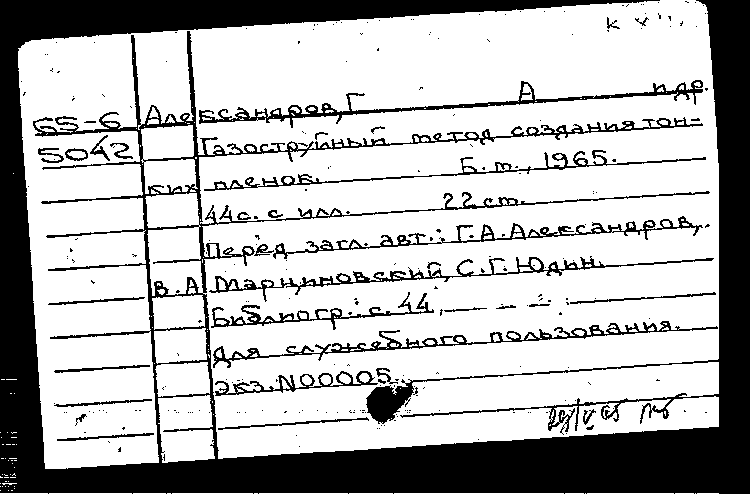 К
65-6 Александров, Г А и др.
5042 Газоструйный метод создания тон-
ких пленок. Б.т., 1965.
44с. с илл. 22 ст.
Перед загл. авт.: Г.А.Александров,
В.А Марциновский, С.Г.Юдин.
Библиогр.: с. 44.
Для служебного пользования.
Экз.N00005.